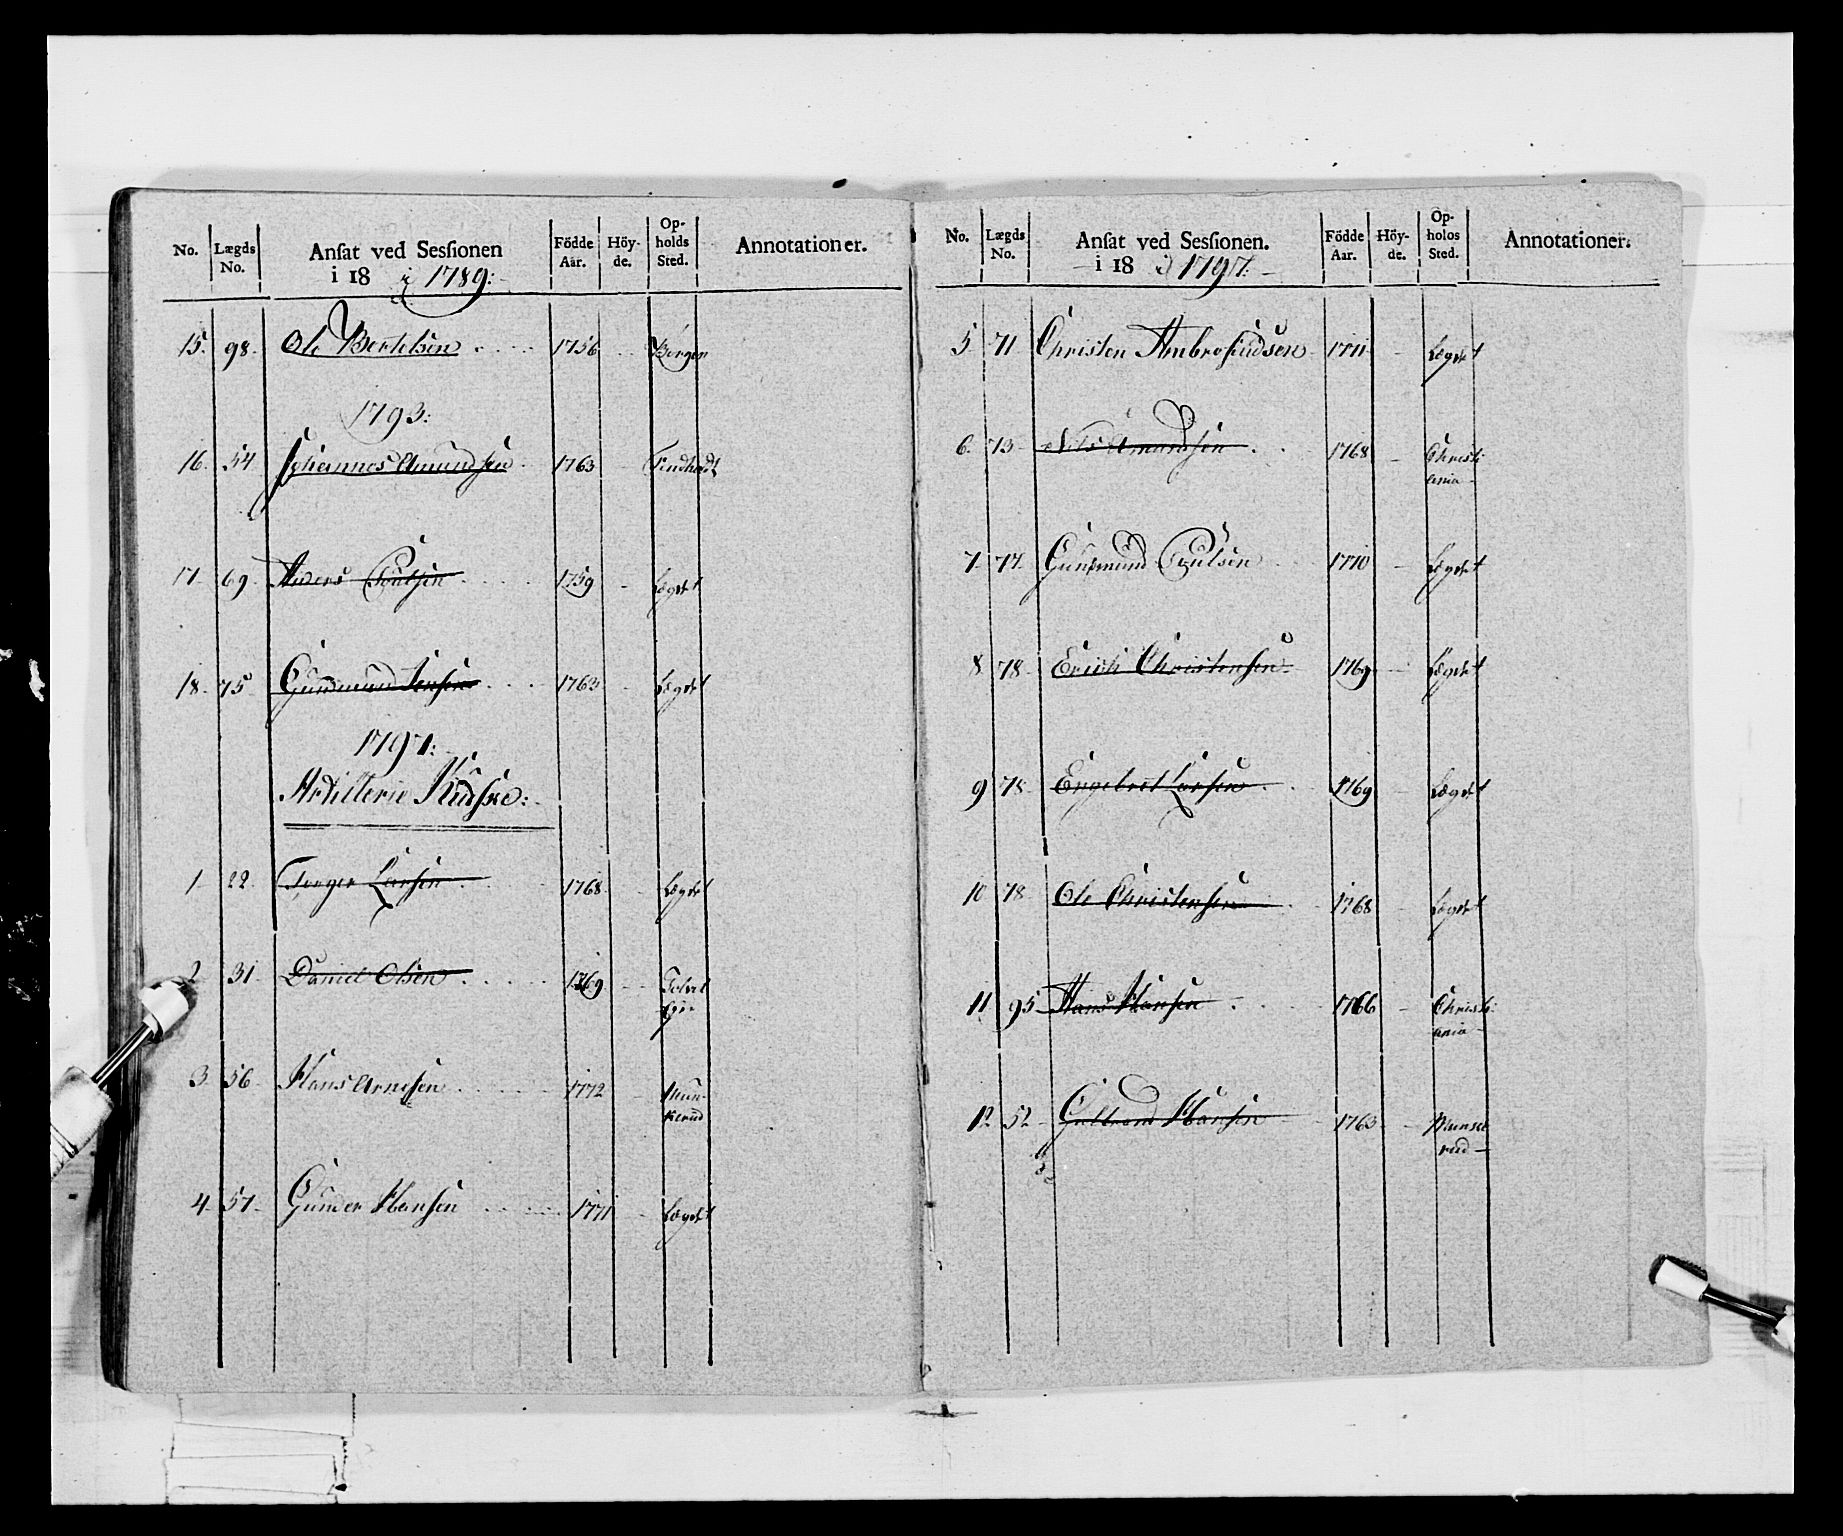 No. Lægds No. Ansat ved Sessionen i 18 i 1789: Födde Aar. Höyde. Opholds Sted. Annotationer.
15. 98. Ole Bertelsen 1756 Bergen
1793:
16. 54 Johannes Amundsen 1763
17. 69. Anders Poulsen 1759 Lægdet
18. 75. Gudmund Jensen 1763 Lægdet
1797:
Artillerie Kudske:
1. 22. Torger Larsen 1768 Lægdet
2. 31. Daniel Olsen 1769
3. 56. Hans Arnesen 1772 Mun-
kerud
4. 57. Gunder Hansen 1771 Lægdet
No. Lægds No. Ansat ved Sessionen. i 18 i 1797. Födde Aar. Höy-de. Op-holos Sted. Annotationer.
5 71 Christen Ambrosiudsen 1771 Lægdet
6. 73. Nils Amundsen 1768 Christi
ania
7. 77. Gudmund Poulsen 1770 Lægdet
8 78. Erich Christensen 1769 Lægdet
9 78. Engebret Larsen 1769 Lægdet
10 78. Ole Christensen 1768 Lægdet
11 95. Hans Hansen 1766 Christi
ania
12. 52. Gulbrand Hansen 1763
rud